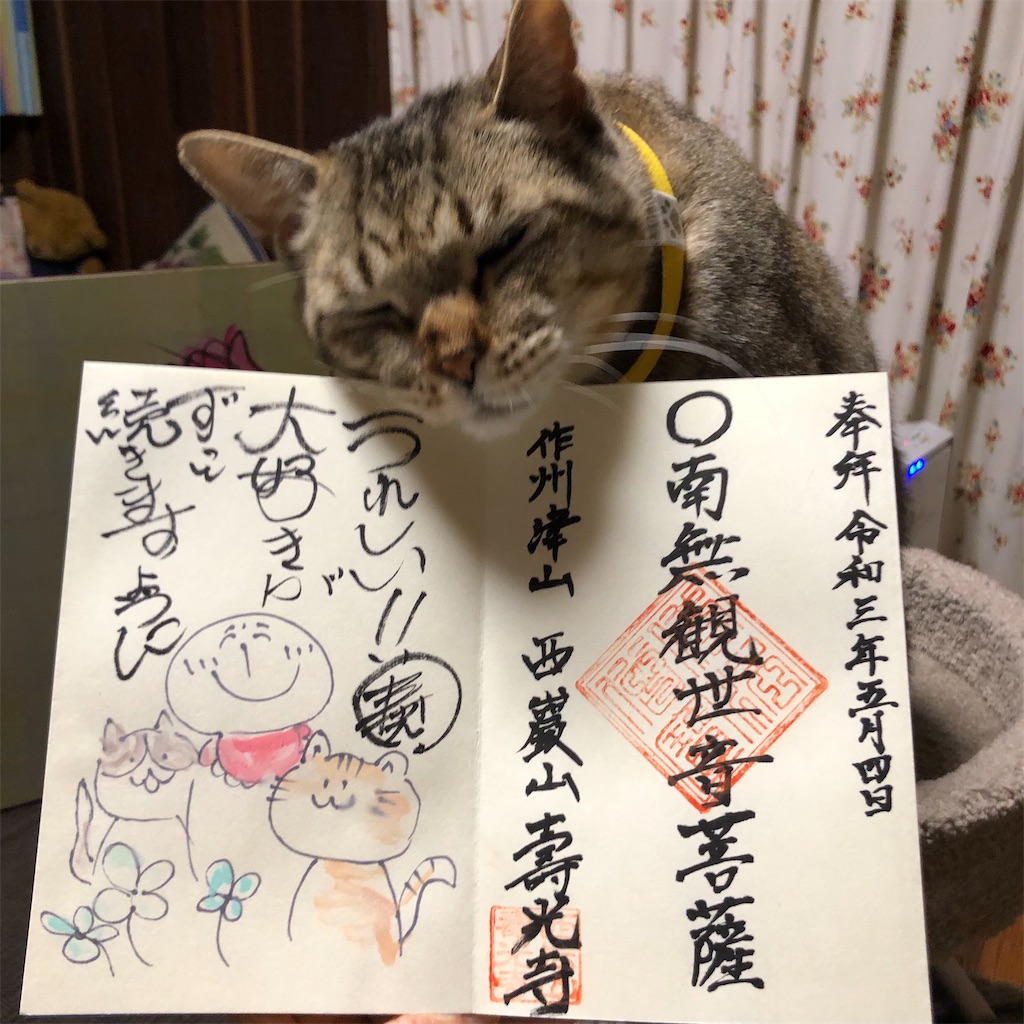 奉拝 令和三年五月四日
〇南無観世音菩薩
作州津山 西巌山 壽光寺
うれしい!!
大好きが
ずっと
続きますように